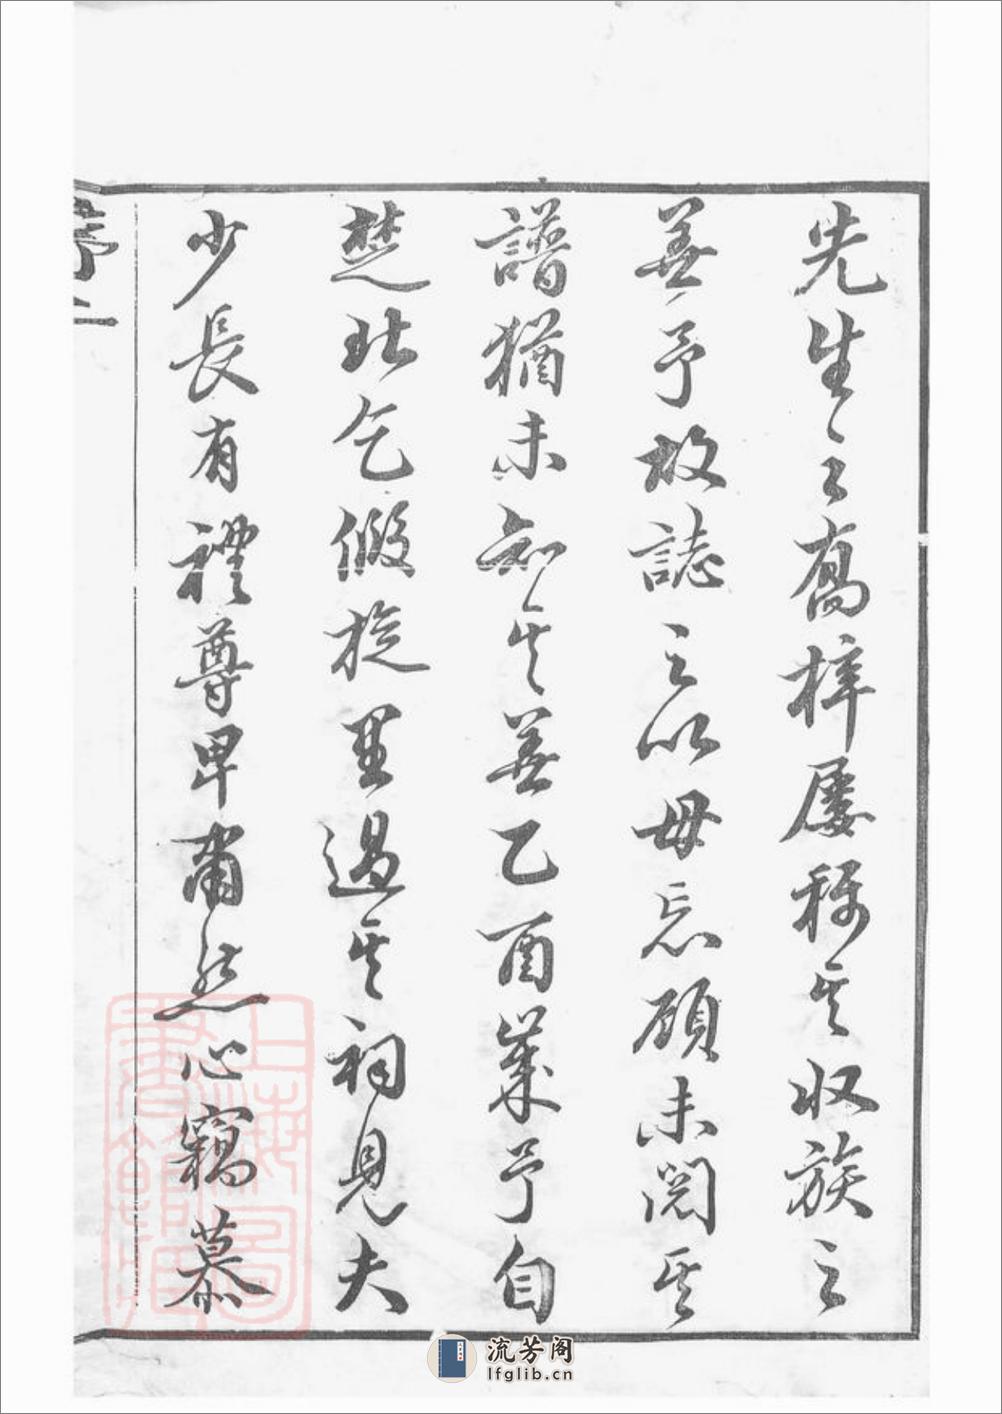 先生之喬梓屢稱其收族之
善予故誌之以毋忘顧未閱其
譜猶未知其善乙酉歲予自
楚北乞假旋里過其祠見夫
少長有禮尊卑肅然心竊慕
序二
上海圖書館藏
流芳阁
lfglib.cn